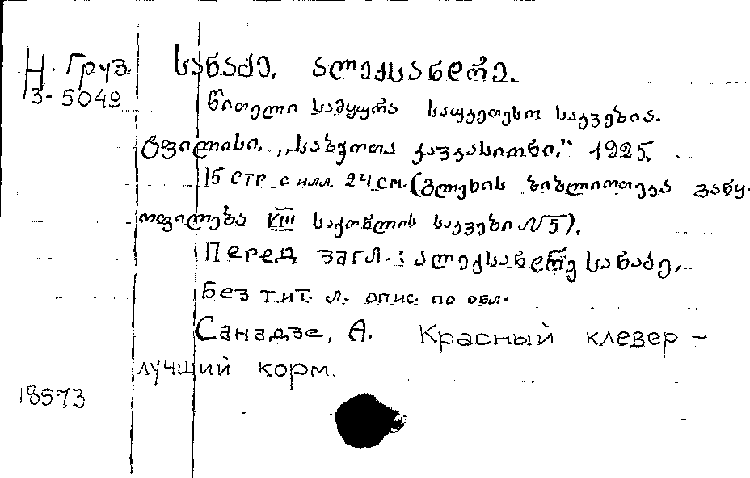 Н. Груз.
3-5042
სანაძე, ალექსანდრე.
წითელი სამყურა საუკეთესო საკვებია.
ტფილისი, „საბჭოთა კავკასიონი," 1925.
15 стр. с илл. 24 см. (გლეხის ბიბლიოთეკა განყ-
ოფილება VIII საქონლის საკვები № 5).
Перед загл.: ალექსანდრე სანაძე.
Без тит. л. опис. по обл.
Санадзе, А. Красный клевер –
лучший корм.
18573